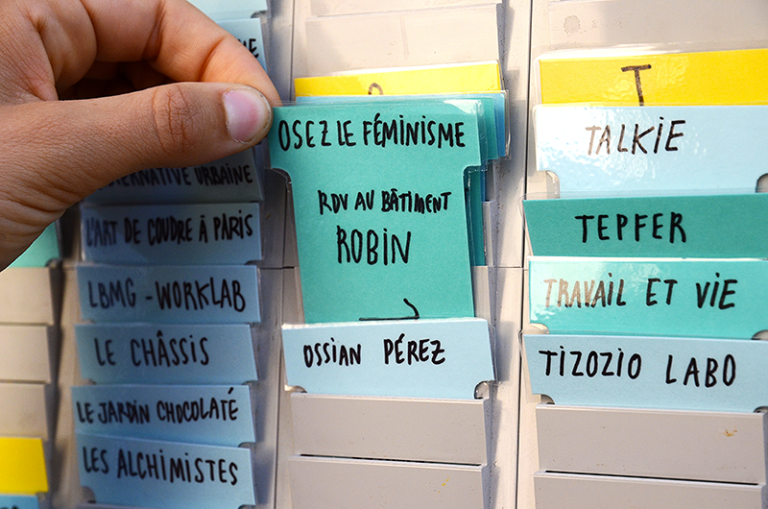 URBAINE
L'ART DE COUDRE À PARIS
LBMG - WORKLAB
LE CHÂSSIS
LE JARDIN CHOCOLATÉ
LES ALCHIMISTES
OSEZ LE FÉMINISME
RDV AU BÂTIMENT
ROBIN
OSSIAN PÉREZ
T
TALKIE
TEPFER
TRAVAIL ET VIE
TIZOZIO LABO